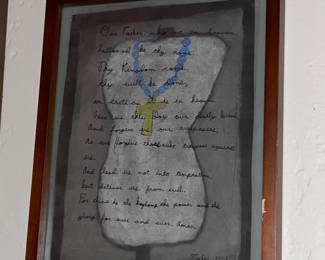 Our Father who art in heaven
hallowed be thy name.
Thy Kingdom come
thy will be done,
on earth as it is in heaven
Give us this day our daily bread
And forgive us our trespasses,
as we forgive those who trespass against
us.
And lead us not into temptation
but deliver us from evil.
For thine is the kingdom, the power and the
glory for ever and ever. Amen.